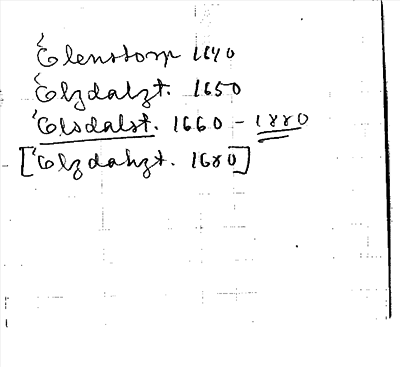 'Elenstorp 1640
'Elzdalzt. 1650
'Elsdalst. 1660 - 1880
['Elzdahzt. 1680]